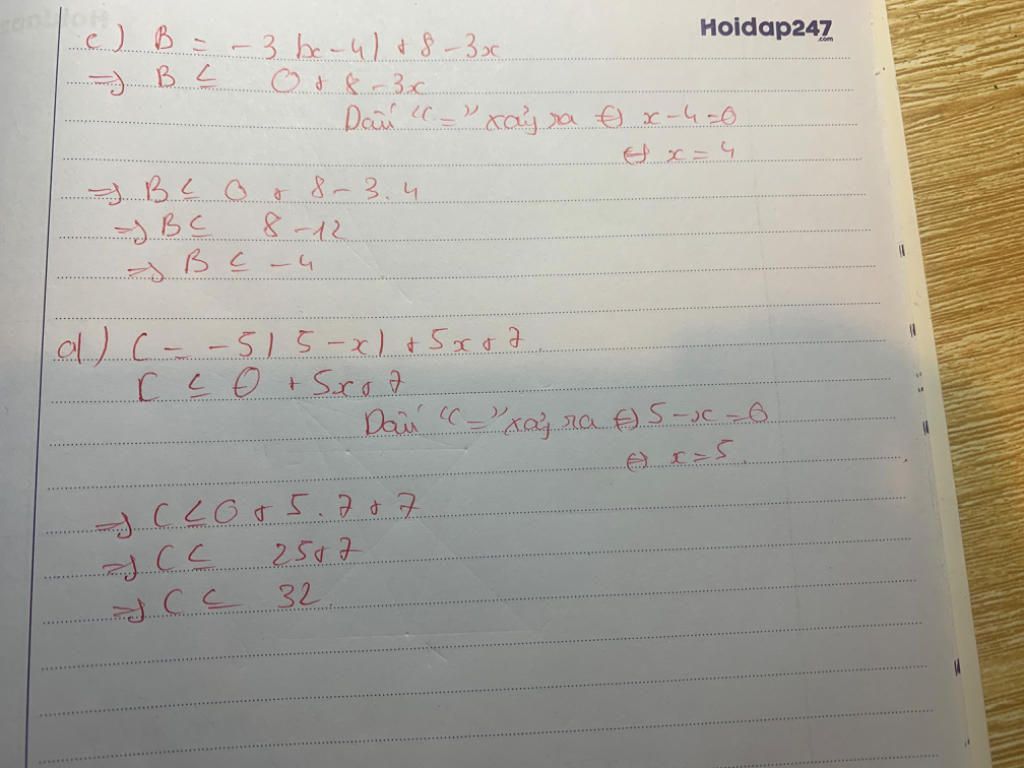 Hoidap247
.com
c) B = -3 |x-4| + 8 - 3x
=> B ≤ 0 + 8 - 3x
Dấu "=" xảy ra <=> x-4=0
<=> x = 4
=> B ≤ 0 + 8 - 3.4
=> B ≤ 8 - 12
=> B ≤ -4
d) C = -5| 5-x| + 5x + 7
C ≤ 0 + 5x + 7
Dấu "=" xảy ra <=> 5-x = 0
<=> x = 5.
=> C ≤ 0 + 5.7 + 7
=> C ≤ 25 + 7
=> C ≤ 32.